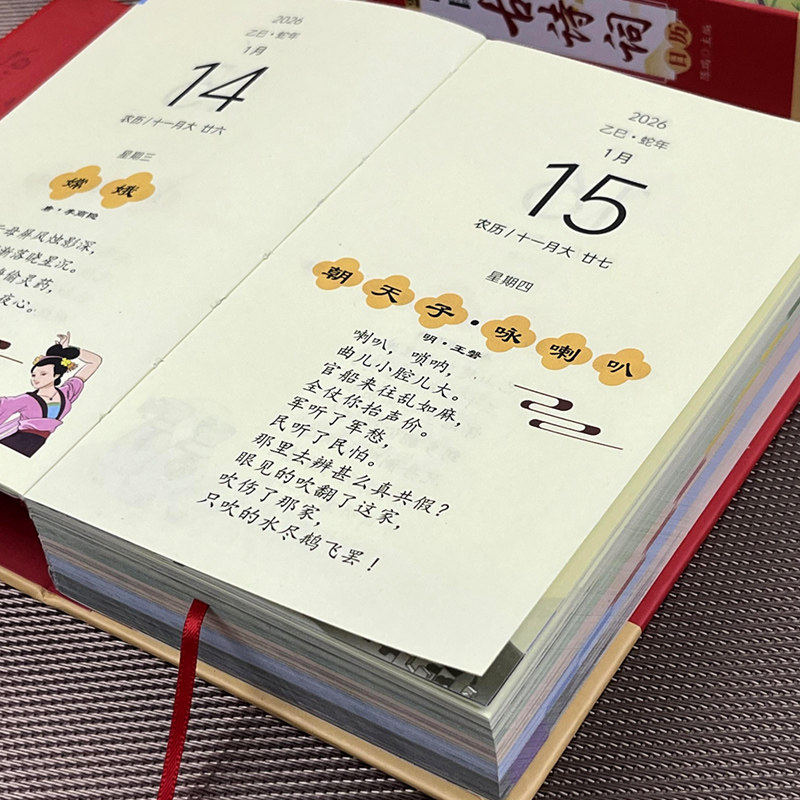 古诗词
日历
主编
2026
乙巳·蛇年
1月
14
农历/十一月大 廿六
星期三
嫦娥
唐·李商隐
母屏风烛影深,
渐落晓星沉。
偷灵药,
夜心。
2026
乙巳·蛇年
1月
15
农历/十一月大 廿七
星期四
朝天子·咏喇叭
明·王磐
喇叭,唢呐,
曲儿小腔儿大。
官船来往乱如麻,
全仗你抬声价。
军听了军愁,
民听了民怕。
那里去辨甚么真共假?
眼见的吹翻了这家,
吹伤了那家,
只吹的水尽鹅飞罢!